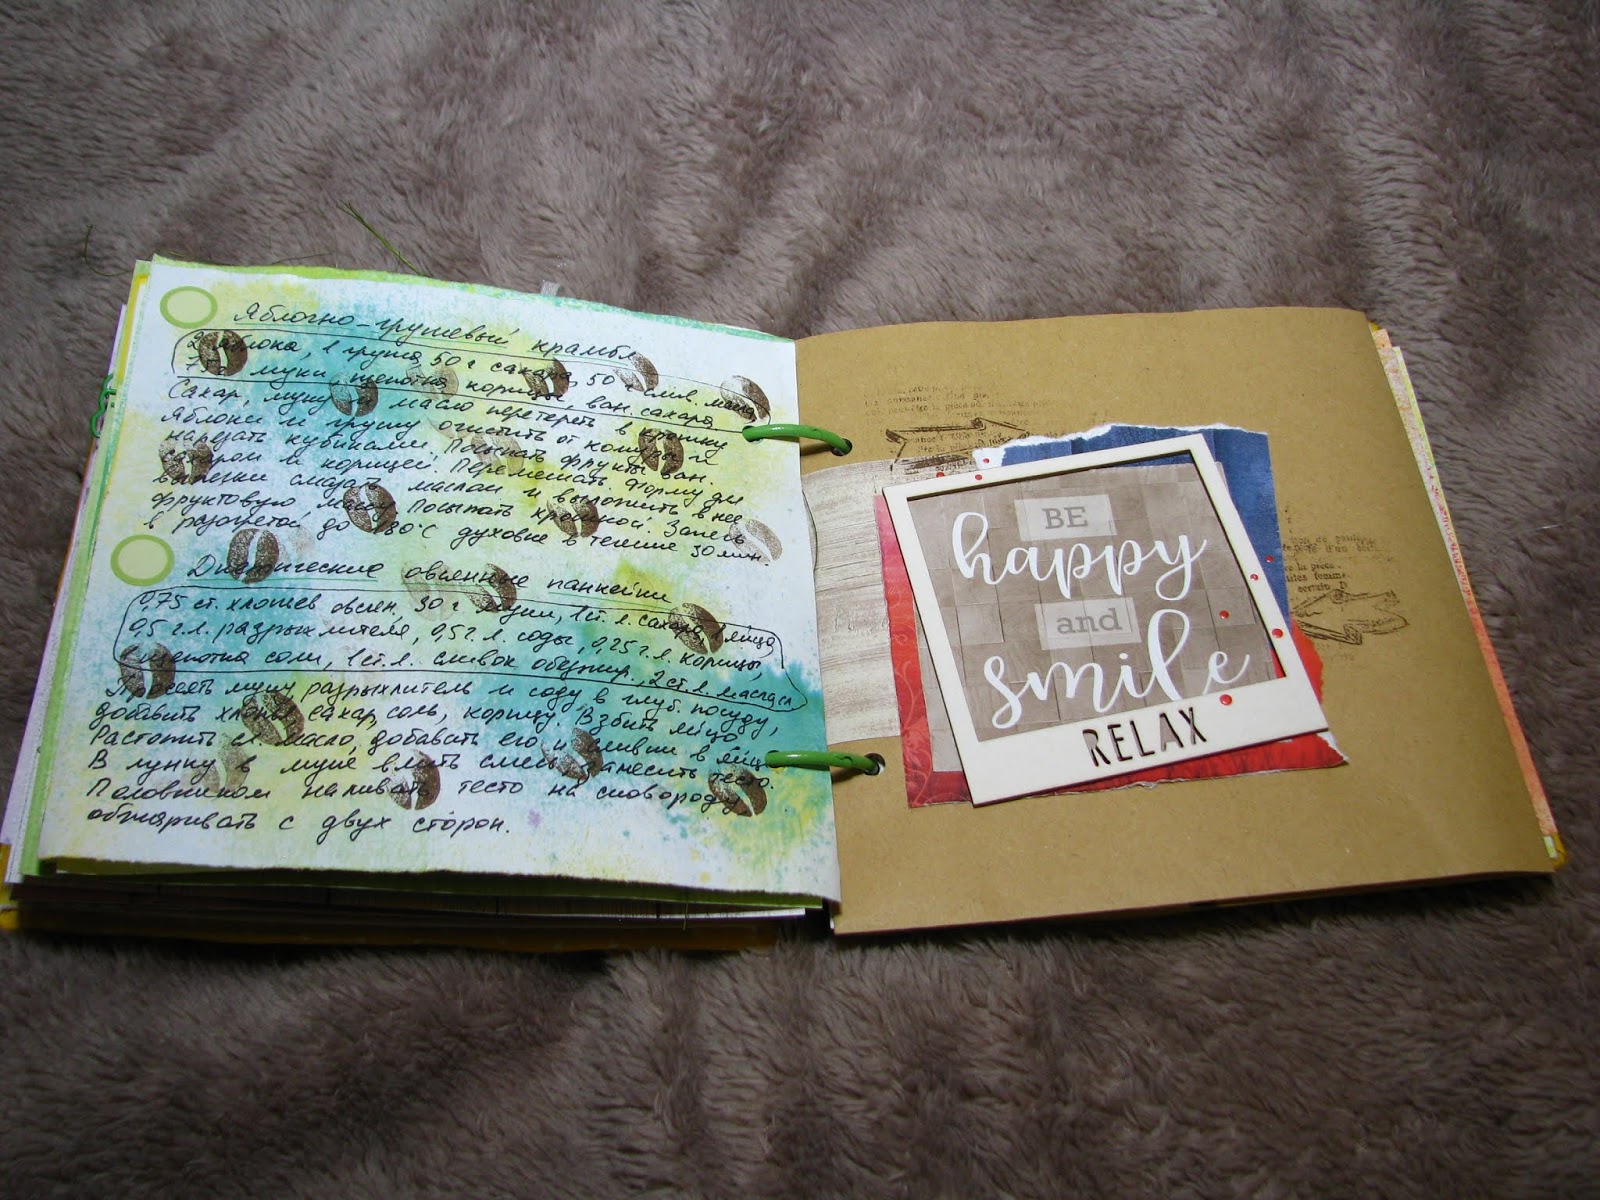 Яблочно-грушевый крамбл
2 яблока, 1 груша, 50 г сахара, 50 г слив. масла,
75 г муки, щепотка корицы, ван. сахара
Сахар, муку и масло перетереть в крошку
Яблоки и грушу очистить от кожуры и
нарезать кубиками. Посыпать фрукты ван.
сахаром и корицей. Перемешать. Форму для
выпечки смазать маслом и выложить в нее
фруктовую массу. Посыпать крошкой. Запечь
в разогретой до 180°С духовке в течение 30 мин.
Диетические овсянные панкейки
0,75 ст. хлопьев овсян., 30 г муки, 1 ст. л. сахара, 1 яйцо,
0,5 г.л. разрыхлителя, 0,5 г.л. соды, 0,25 г.л. корицы,
1 щепотка соли, 1 ст. л. сливок обезжир., 2 ст. л. масла сл.
Просеять муку, разрыхлитель и соду в глуб. посуду,
добавить хлопья, сахар, соль, корицу. Взбить яйцо.
Растопить сл. масло, добавать его и сливки в яйцо.
В лунку в муке влить смесь, замесить тесто.
Половником наливать тесто на сковороду,
обжаривать с двух сторон.
BE
happy
and
smile
RELAX